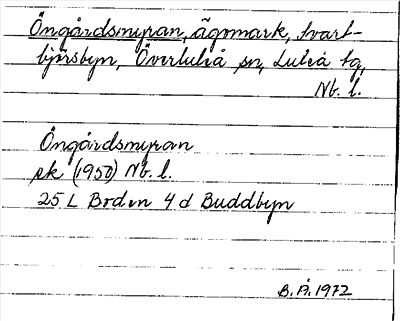 Öngårdsmyran, ägomark, Svart-
björsbyn, Överluleå sn, Luleå tg,
Nb. l.
Öngårdsmyran
ek (1950) Nb. l.
25 L Boden 4 d Buddbyn
B. Å. 1972